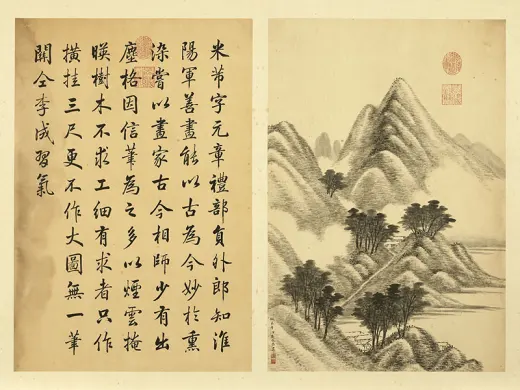 米芾字元章禮部員外郎知淮
陽軍善畫能以古為今妙於熏
染嘗以畫家古今相師少有出
塵格因信筆為之多以煙雲掩
暎樹木不求工細有求者只作
橫挂三尺更不作大圖無一筆
關仝李成習氣